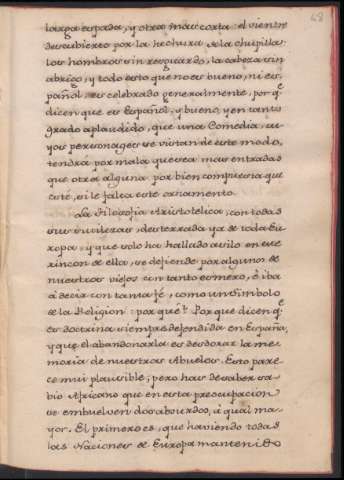 48
larga espada, y otra mas corta: el vientre
descubierto por la hechura de la chupilla:
los hombros sin resguardo, la cabeza sin
abrigo, y todo esto que no es bueno, ni es
pañol, es celebrado generalmente, por q.e
dicen que es Español, y bueno, y en tanto
grado aplaudido, que una Comedia, cu
yos personages se vistan de este modo,
tendrá por mala que sea mas entradas
que otra alguna por bien compuesta que
esté, si le falta este ornamento.
La Filosofia Aristotelica, con todas
sus sutilezas, desterrada ya de toda Eu
ropa, y que solo ha hallado asilo en este
rincon de ella, se defiende por algunos de
nuestros viejos con tanto esmero, é iba
á decir con tanta fé, como un simbolo
de la Religion: por qué? Por que dicen q.e
es doctrina siempre defendida en España,
y que el abandonarla es desdorar la me
moria de nuestros Abuelos. Esto pare
ce mui plausible; pero has de saber sa
bio Africano que en esta preocupacion
se embuelven dos absurdos, á qual ma
yor. El primero es, que haviendo todas
las Naciones de Europa mantenido